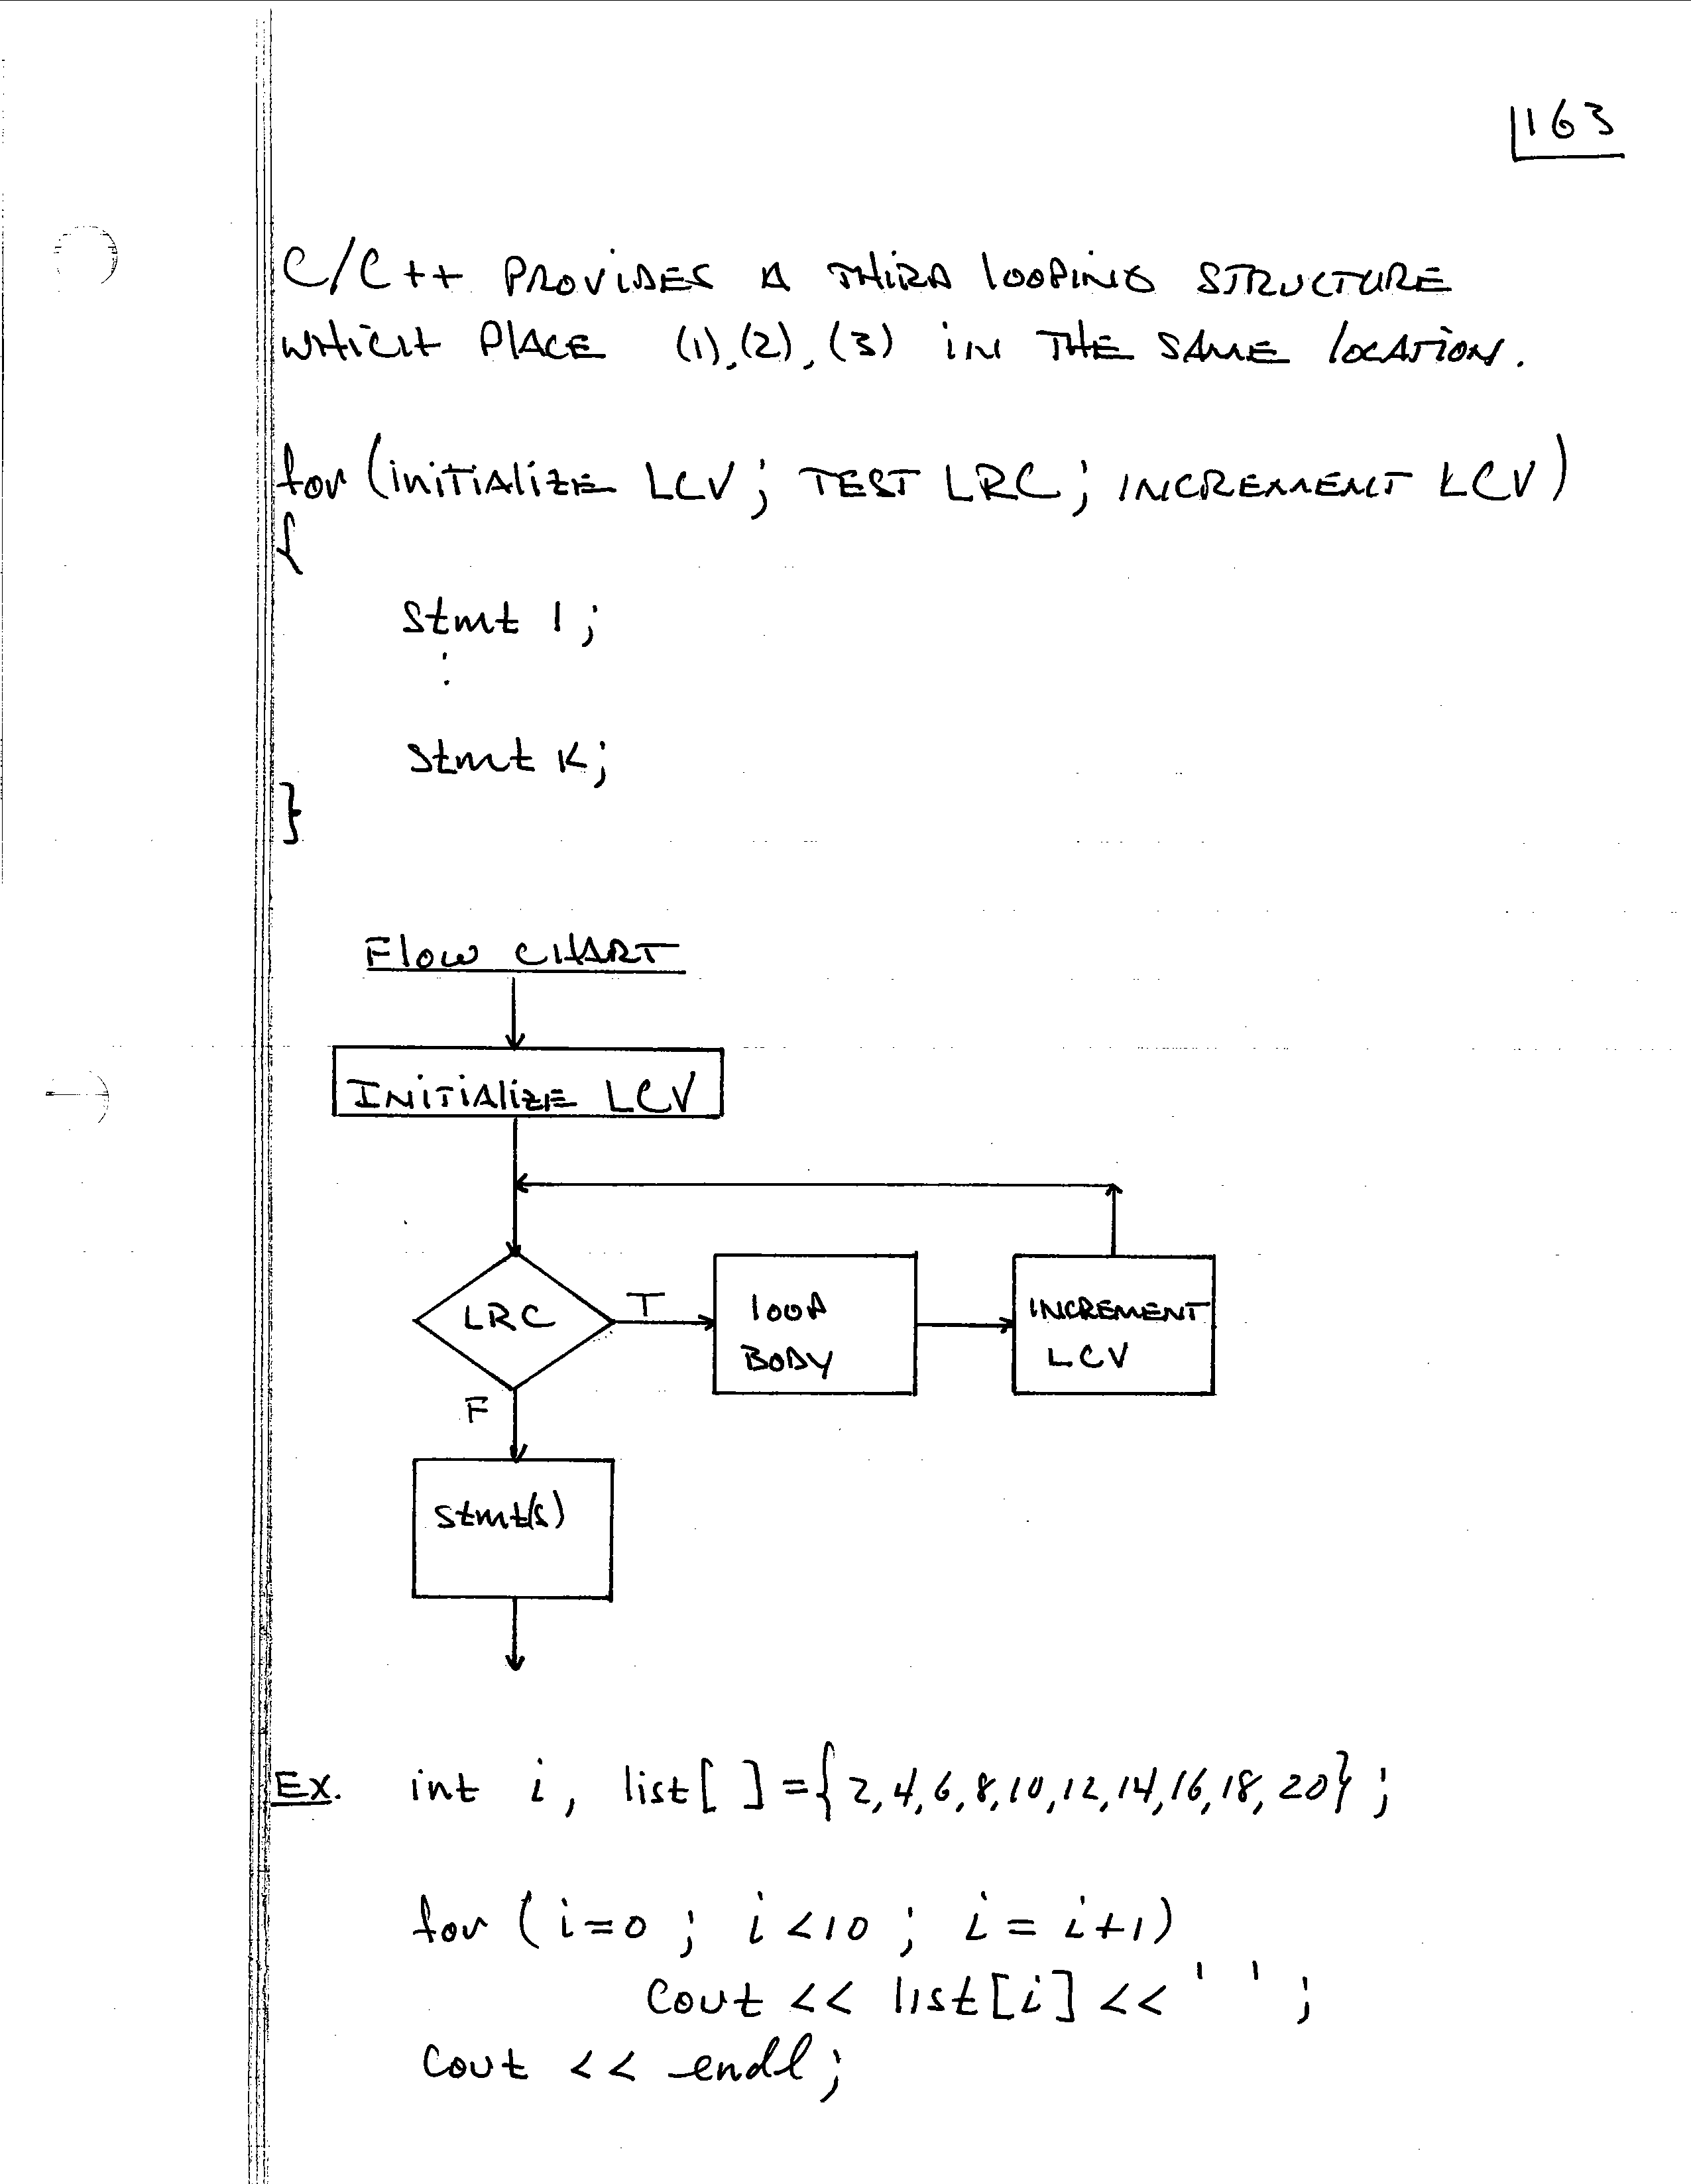 163
C/C++ PROVIDES A THIRD LOOPING STRUCTURE
WHICH PLACE (1),(2),(3) IN THE SAME LOCATION.
for (INITIALIZE LCV; TEST LRC; INCREMENT LCV)
{
stmt 1;
:
stmt K;
}
FLOW CHART
INITIALIZE LCV
LRC
T
LOOP
BODY
INCREMENT
LCV
F
stmt(s)
Ex. int i, list[ ]={2,4,6,8,10,12,14,16,18,20};
for (i=0; i<10; i=i+1)
cout << list[i] <<' ';
cout << endl;